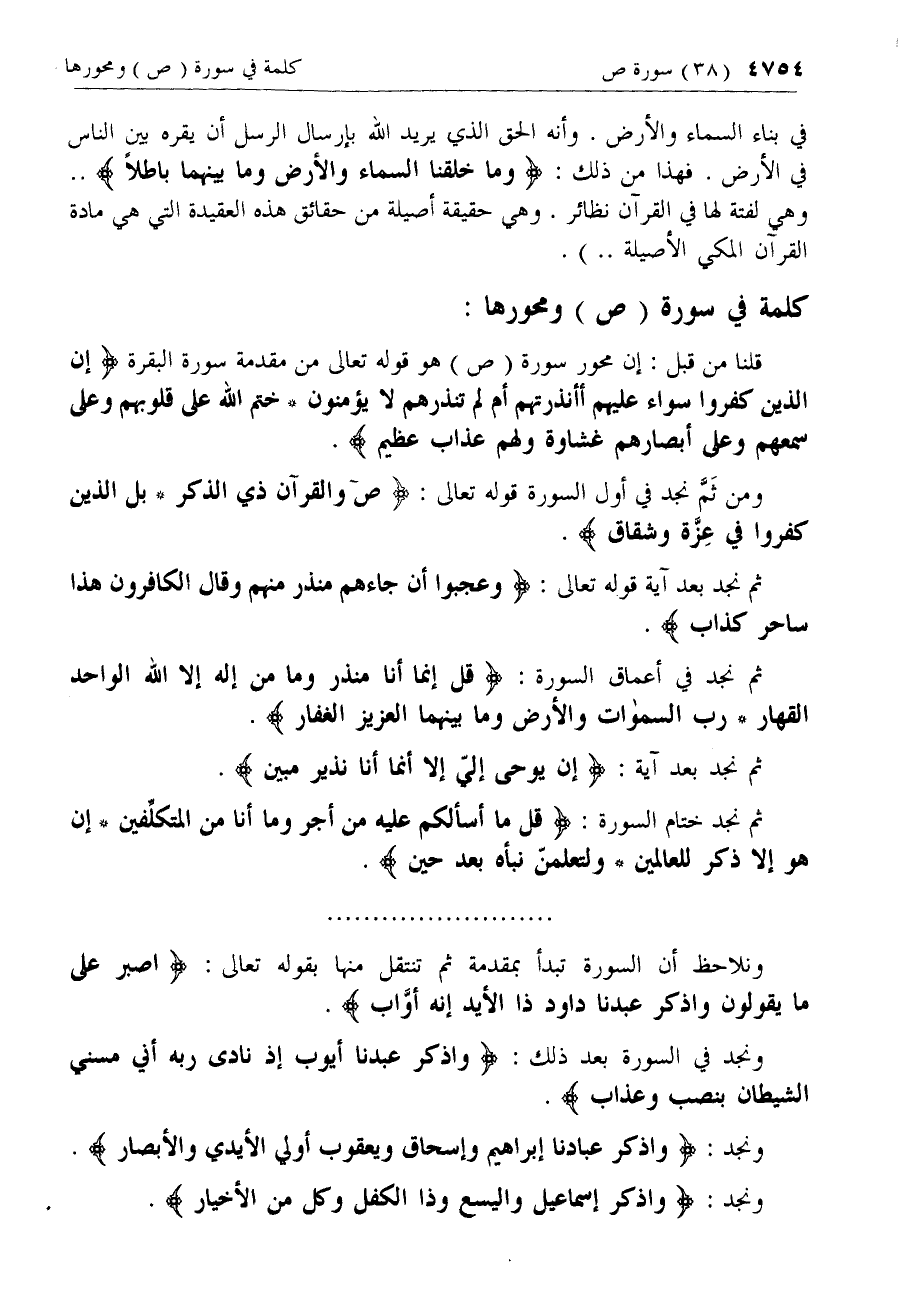 ٤٧٥٤ (٣٨) سورة ص كلمة في سورة ( ص ) ومحورها
في بناء السماء والأرض . وأنه الحق الذي يريد الله بإرسال الرسل أن يقره بين الناس
في الأرض . فهذا من ذلك : ﴿ وما خلقنا السماء والأرض وما بينهما باطلاً ﴾ ..
وهي لفتة لها في القرآن نظائر . وهي حقيقة أصيلة من حقائق هذه العقيدة التي هي مادة
القرآن المكي الأصيلة .. ) .
كلمة في سورة ( ص ) ومحورها :
قلنا من قبل : إن محور سورة ( ص ) هو قوله تعالى من مقدمة سورة البقرة ﴿ إن
الذين كفروا سواء عليهم أأنذرتهم أم لم تنذرهم لا يؤمنون * ختم الله على قلوبهم وعلى
سمعهم وعلى أبصارهم غشاوة ولهم عذاب عظيم ﴾ .
ومن ثَمَّ نجد في أول السورة قوله تعالى : ﴿ صٓ والقرآن ذي الذكر * بل الذين
كفروا في عِزَّة وشقاق ﴾ .
ثم نجد بعد آية قوله تعالى : ﴿ وعجبوا أن جاءهم منذر منهم وقال الكافرون هذا
ساحر كذاب ﴾ .
ثم نجد في أعماق السورة : ﴿ قل إنما أنا منذر وما من إله إلا الله الواحد
القهار * رب السمٰوات والأرض وما بينهما العزيز الغفار ﴾ .
ثم نجد بعد آية : ﴿ إن يوحى إليّ إلا أنما أنا نذير مبين ﴾ .
ثم نجد ختام السورة : ﴿ قل ما أسألكم عليه من أجر وما أنا من المتكلِّفين * إن
هو إلا ذكر للعالمين * ولتعلمنّ نبأه بعد حين ﴾ .
.........................
ونلاحظ أن السورة تبدأ بمقدمة ثم تنتقل منها بقوله تعالى : ﴿ اصبر على
ما يقولون واذكر عبدنا داود ذا الأيد إنه أوَّاب ﴾ .
ونجد في السورة بعد ذلك : ﴿ واذكر عبدنا أيوب إذ نادى ربه أني مسني
الشيطان بنصب وعذاب ﴾ .
ونجد : ﴿ واذكر عبادنا إبراهيم وإسحاق ويعقوب أولي الأيدي والأبصار ﴾ .
ونجد : ﴿ واذكر إسماعيل واليسع وذا الكفل وكل من الأخيار ﴾ .